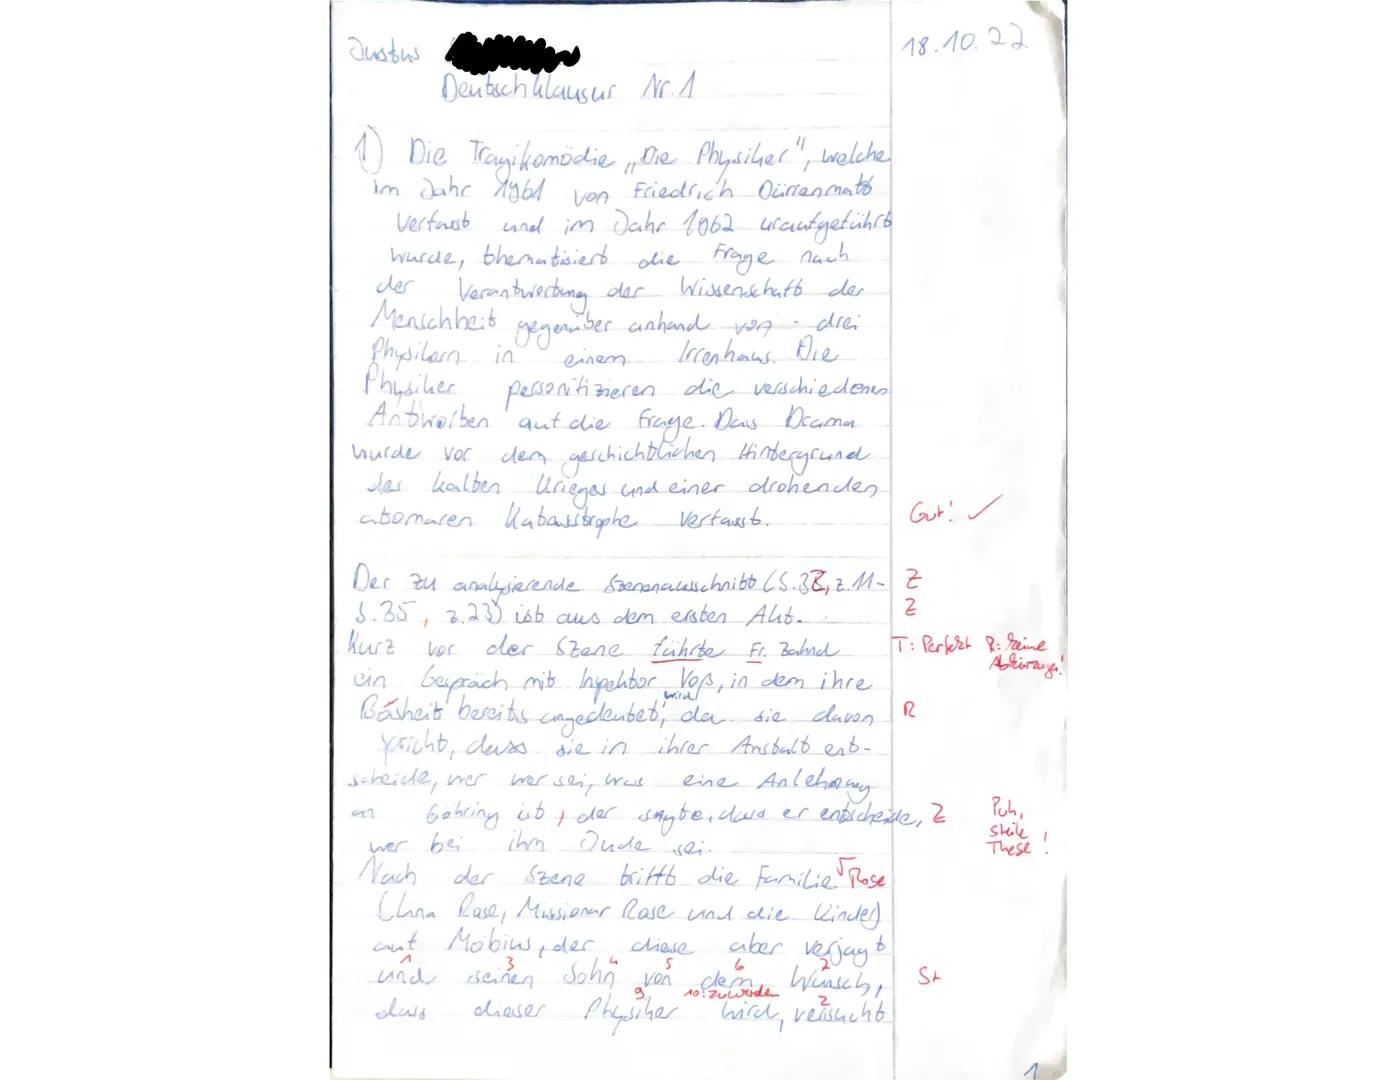 Justus
18.10.22
Deutschklausur Nr. 1
1) Die Tragikomödie „Die Physiker", welche
im Jahr 1961 von Friedrich Dürrenmatt
verfasst und im Jahr 1962 uraufgeführt
wurde, thematisiert die Frage nach
der Verantwortung der Wissenschaft der
Menschheit gegenüber anhand von drei
Physikern in einem Irrenhaus. Die
Physiker personifizieren die verschiedenen
Antworten auf die Frage. Das Drama
wurde vor dem geschichtlichen Hintergrund
des kalten Krieges und einer drohenden
atomaren Katastrophe verfasst. Gut! ✓
Der zu analysierende Szenenausschnitt (S.32, z.11- Z
S.35, z.23) ist aus dem ersten Akt. Z
Kurz vor der Szene führte Fr. Zahnd T: Perfekt R: keine Abkürzung!
ein Gespräch mit Inspektor Voß, in dem ihre
Bösheit bereits angedeutet wird, da sie davon R
spricht, dass sie in ihrer Anstalt ent-
scheide, wer wer sei, was eine Anlehnung
an Göhring ist, der sagte, dass er entscheide, Z Puh, steile These!
wer bei ihm Jude sei.
Nach der Szene tritt die Familie √ Rose
(Lina Rose, Missionar Rose und die Kinder)
auf Möbius, der diese aber verjagt
1 3 4 5 6 2
und seinen Sohn von dem Wunsch, St
9 10: zu werden 2
dass dieser Physiker wird, versucht
1